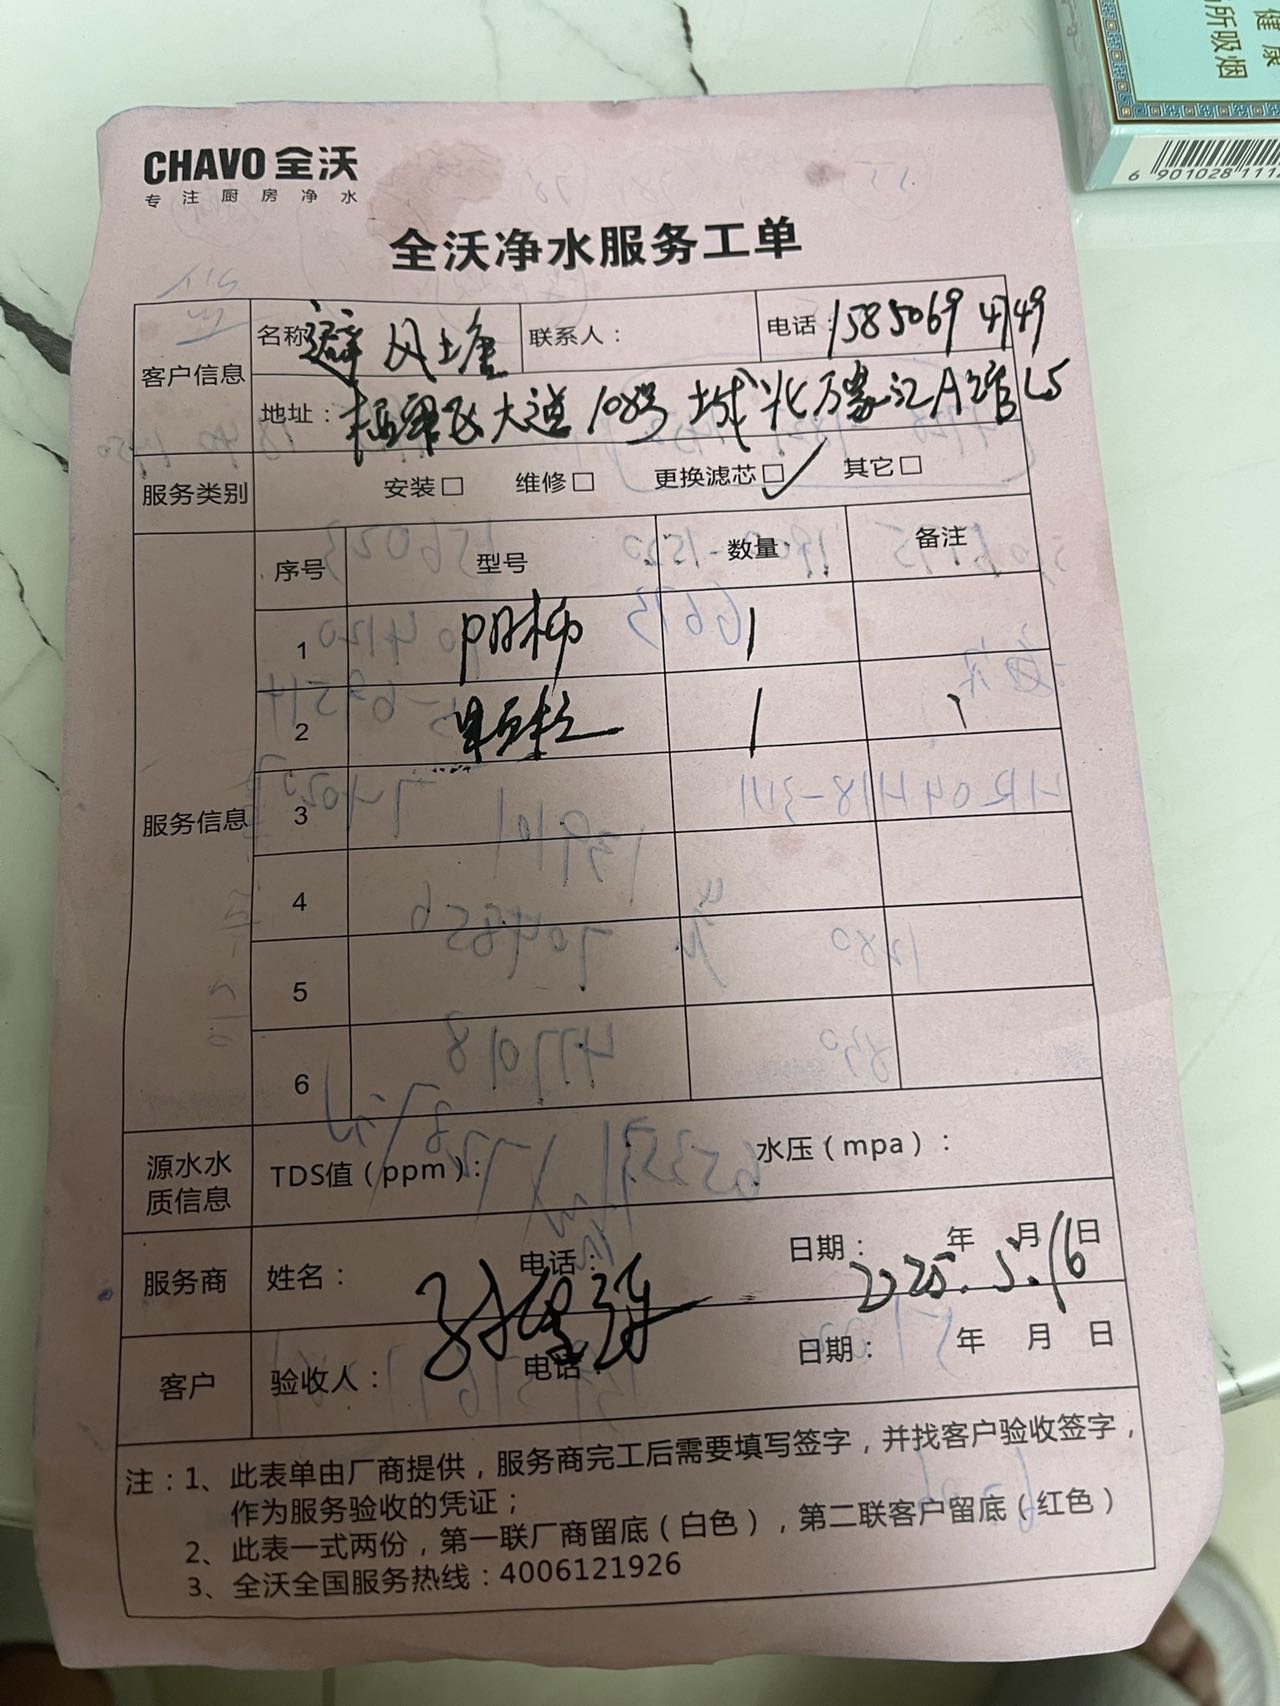 健康
所吸烟
6 901028 111
CHAVO 全沃
专注厨房净水
全沃净水服务工单
客户信息
名称 避风塘
联系人：
电话：15850694149
地址：大道108号 城北万象汇A馆L5
服务类别
安装□ 维修□ 更换滤芯□✓ 其它□
服务信息
序号 型号 数量 备注
1 阳树 1
2 颗粒 1
3
4
5
6
源水水质信息
TDS值（ppm）： 水压（mpa）：
服务商 姓名： 电话： 日期： 年 月 日
2025.5.16
客户 验收人： 电话： 日期： 年 月 日
注：1、此表单由厂商提供，服务商完工后需要填写签字，并找客户验收签字，
作为服务验收的凭证；
2、此表一式两份，第一联厂商留底（白色），第二联客户留底（红色）
3、全沃全国服务热线：4006121926